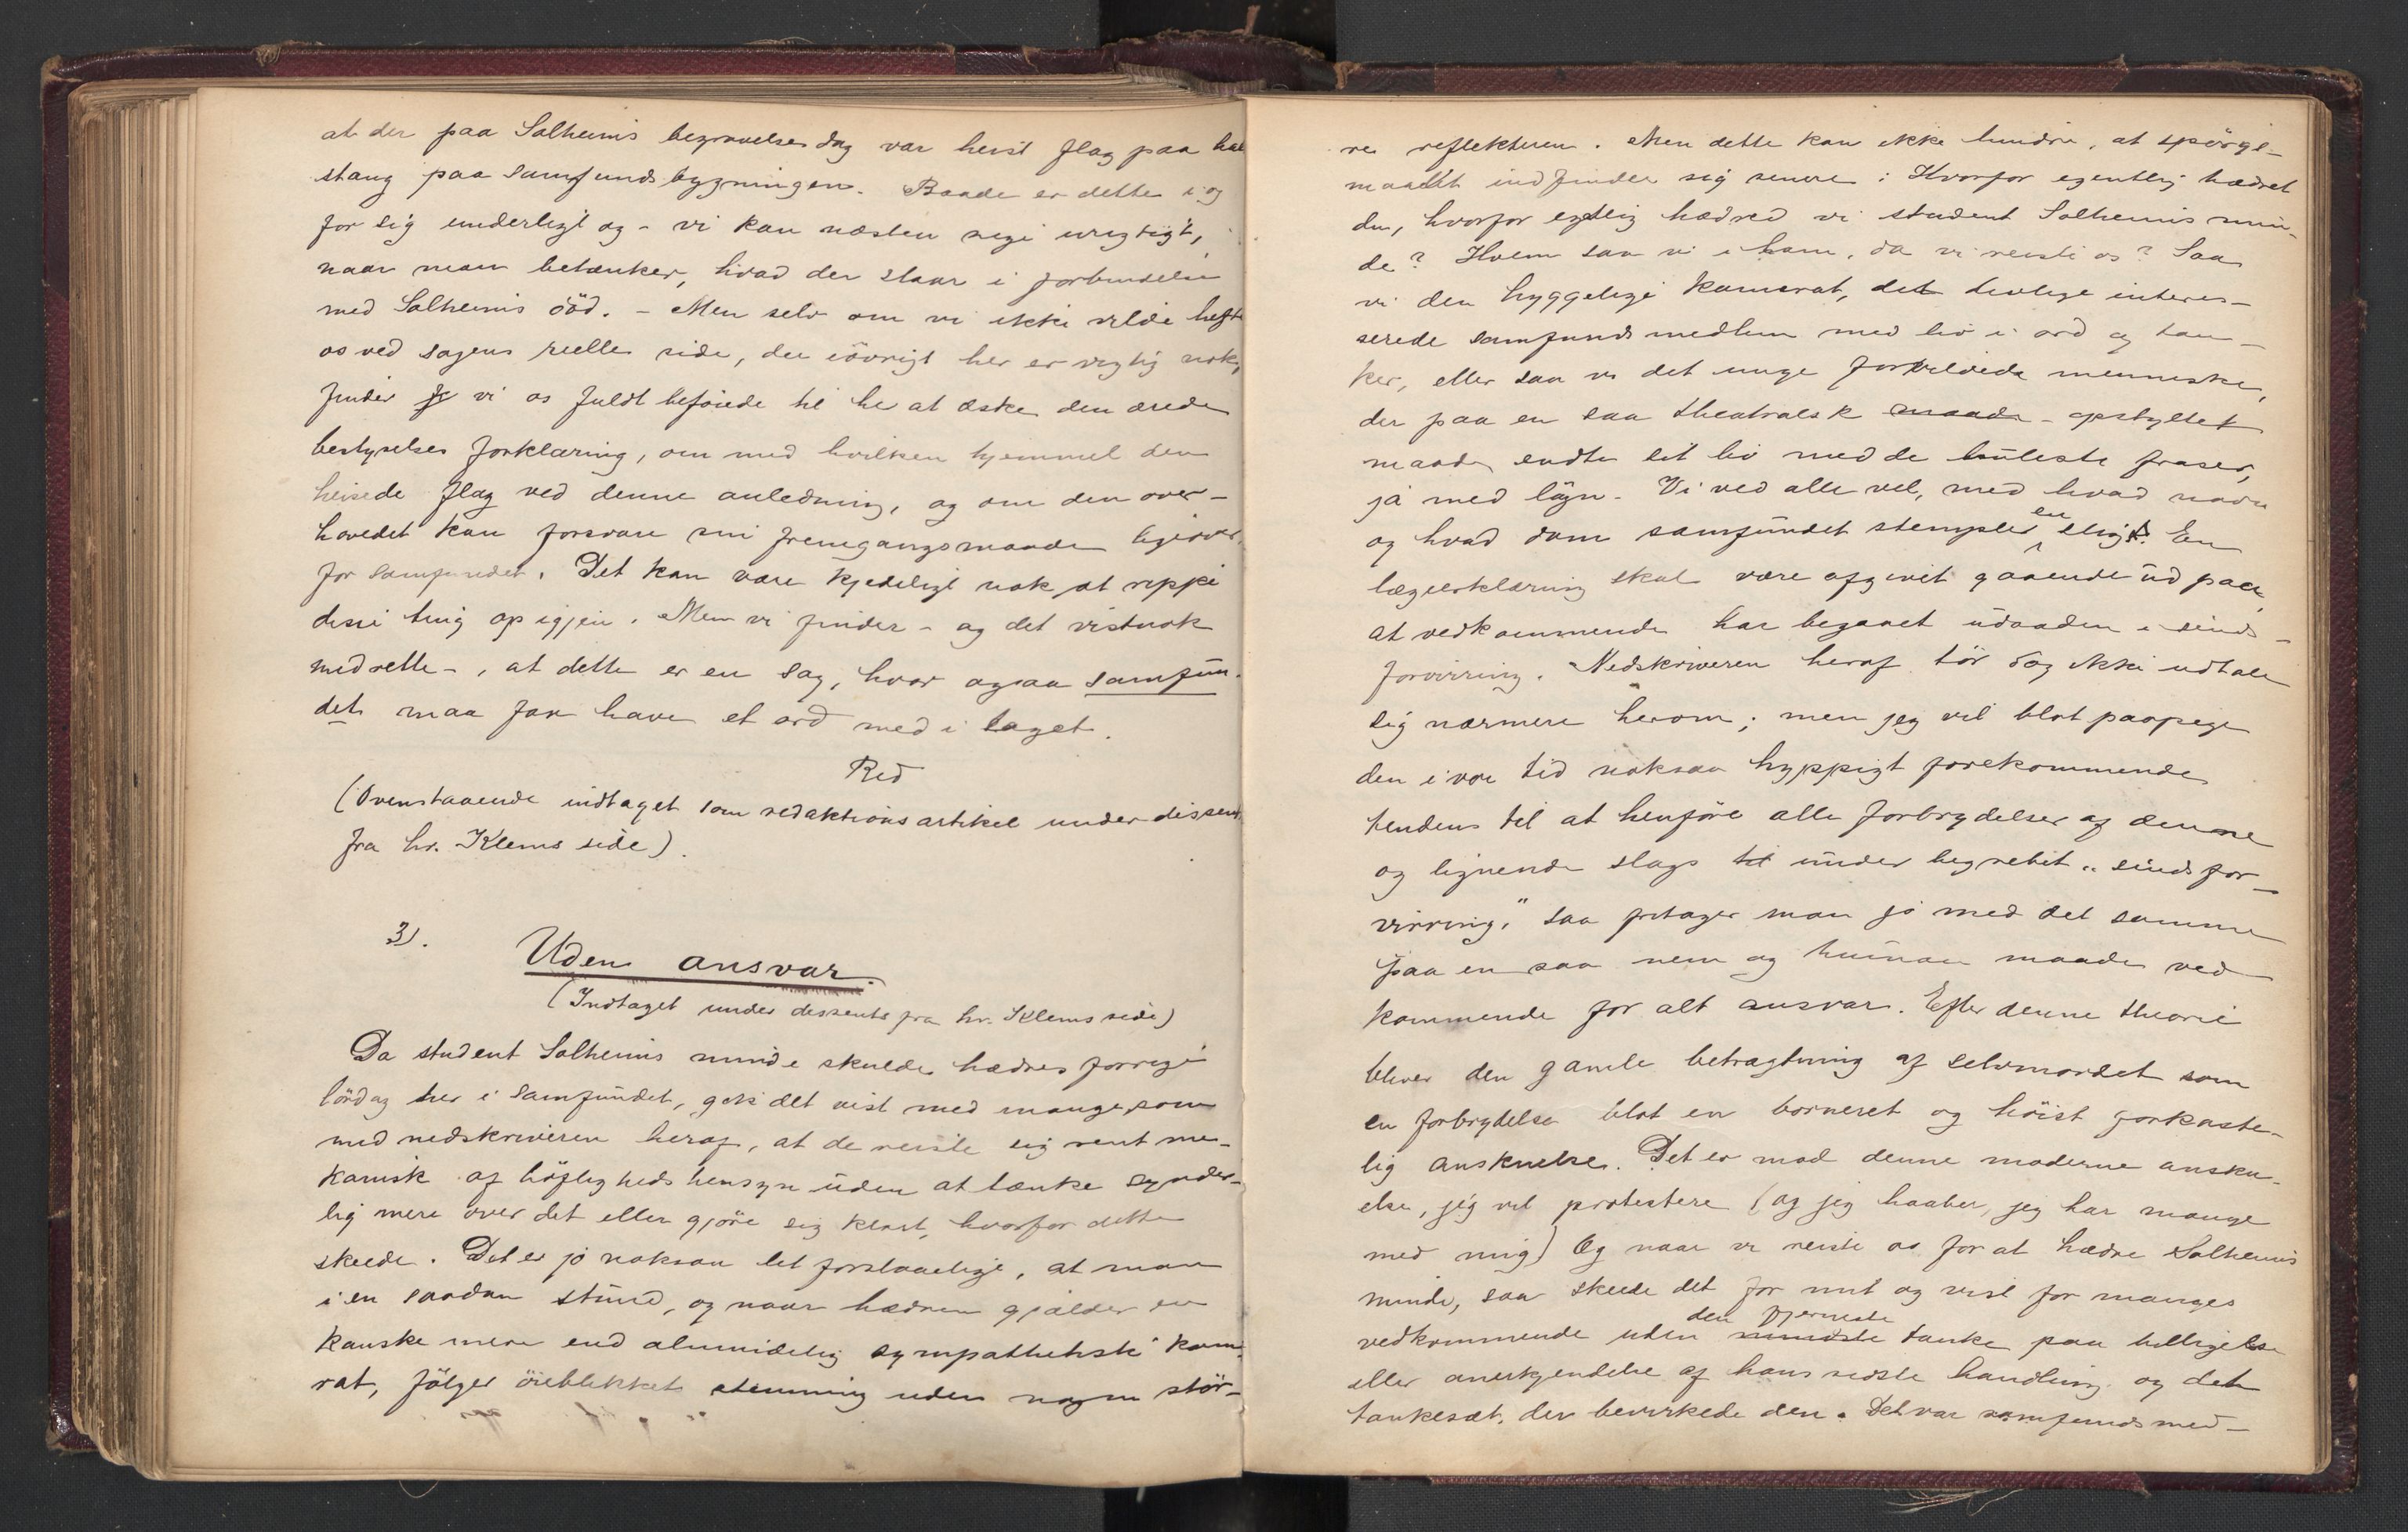 at der paa Solheims begravelsesdag var heist flag paa hal
stang paa samfundsbygningen. Baade er dette i og
for sig underligt og - vi kan næsten sige urigtigt,
naar man betænker, hvad der staar i forbindelse
med Solheims död. - Men selv om vi ikke vilde hefte
os ved sagens reelle side, der iövrigt her er vigtig nok,
finder vi os fuldt beföiede til her at æske den ærede
bestyrelses forklaring, om med hvilken hjemmel den
heisede flag ved denne anledning, og om den over-
hovedet kan forsvare sin fremgangsmaade ligeover-
for samfundet. Det kan være kjedeligt nok at rippe
disse ting op igjen. Men vi finder - og det vistnok
med rette -, at dette er en sag, hvor ogsaa samfun-
det maa faa have et ord med i laget.
Red
(Ovenstaaende indtaget som redaktionsartikel under dissents
fra hr. Klems side).
3).
Uden ansvar.
(Indtaget under dessents fra hr. Klems side)
Da student Solheims minde skulde hædres forrige
lördag her i Samfundet, gik det vist med mange som
med nedskriveren heraf, at de reiste sig rent me-
kanisk af höflighedshensyn uden at tænke synder-
lig mere over det eller gjöre sig klart, hvorfor dette
skede. Det er jo noksaa let forstaaeligt, at man
i en saadan stund, og naar hædren gjælder en
kanske mere end almindelig sympathetisk kame-
rat, fölger öieblikkets stemning uden nogen stör-
re reflekteren. Men dette kan ikke hindre, at spörgs-
maalet indfinder sig senere: Hvorfor egentlig hædret
du, hvorfor egtlig hædred vi student Solheims min-
de? Hvem saa vi i ham, da vi reiste os? Saa
vi den hyggelige kamerat, det livlige interes-
serede samfundsmedlem med liv i ord og tan-
ker, eller saa vi det unge forvildede menneske,
der paa en saa theatralsk maade - opstyltet
maade, endte sit liv med de huleste fraser,
ja med lögn. Vi ved alle vel, med hvad navn
og hvad dom samfundet stempler en sligt. En
lægeerklæring skal være afgivet gaaende ud paa,
at vedkommende har begaaet udaaden i sinds-
forvirring. Nedskriveren heraf tör dog ikke udtale
sig nærmere herom; men jeg vil blot paapege
den i vor tid noksaa hyppigt forekommende
tendens til at henföre alle forbrydelser af denne
og lignende slags til under begrebet "sindsfor-
virring," saa fritager man jo med det samme
paa en saa nem og human maade ved-
kommende for alt ansvar. Efter denne theorie
bliver den gamle betragtning af selvmordet som
en forbrydelse blot en borneret og höist forkaste-
lig anskuelse. Det er mod denne moderne ansku-
else, jeg vil protestere (og jeg haaber, jeg har mange
med mig) Og naar vi reiste os for at hædre Solheims
minde, saa skede det for mit og vist for manges
vedkommende uden mindste den fjerneste tanke paa billigelse
eller anerkjendelse af hans sidste handling og det
tankesæt, der bevirkede den. Det var samfundsmed-